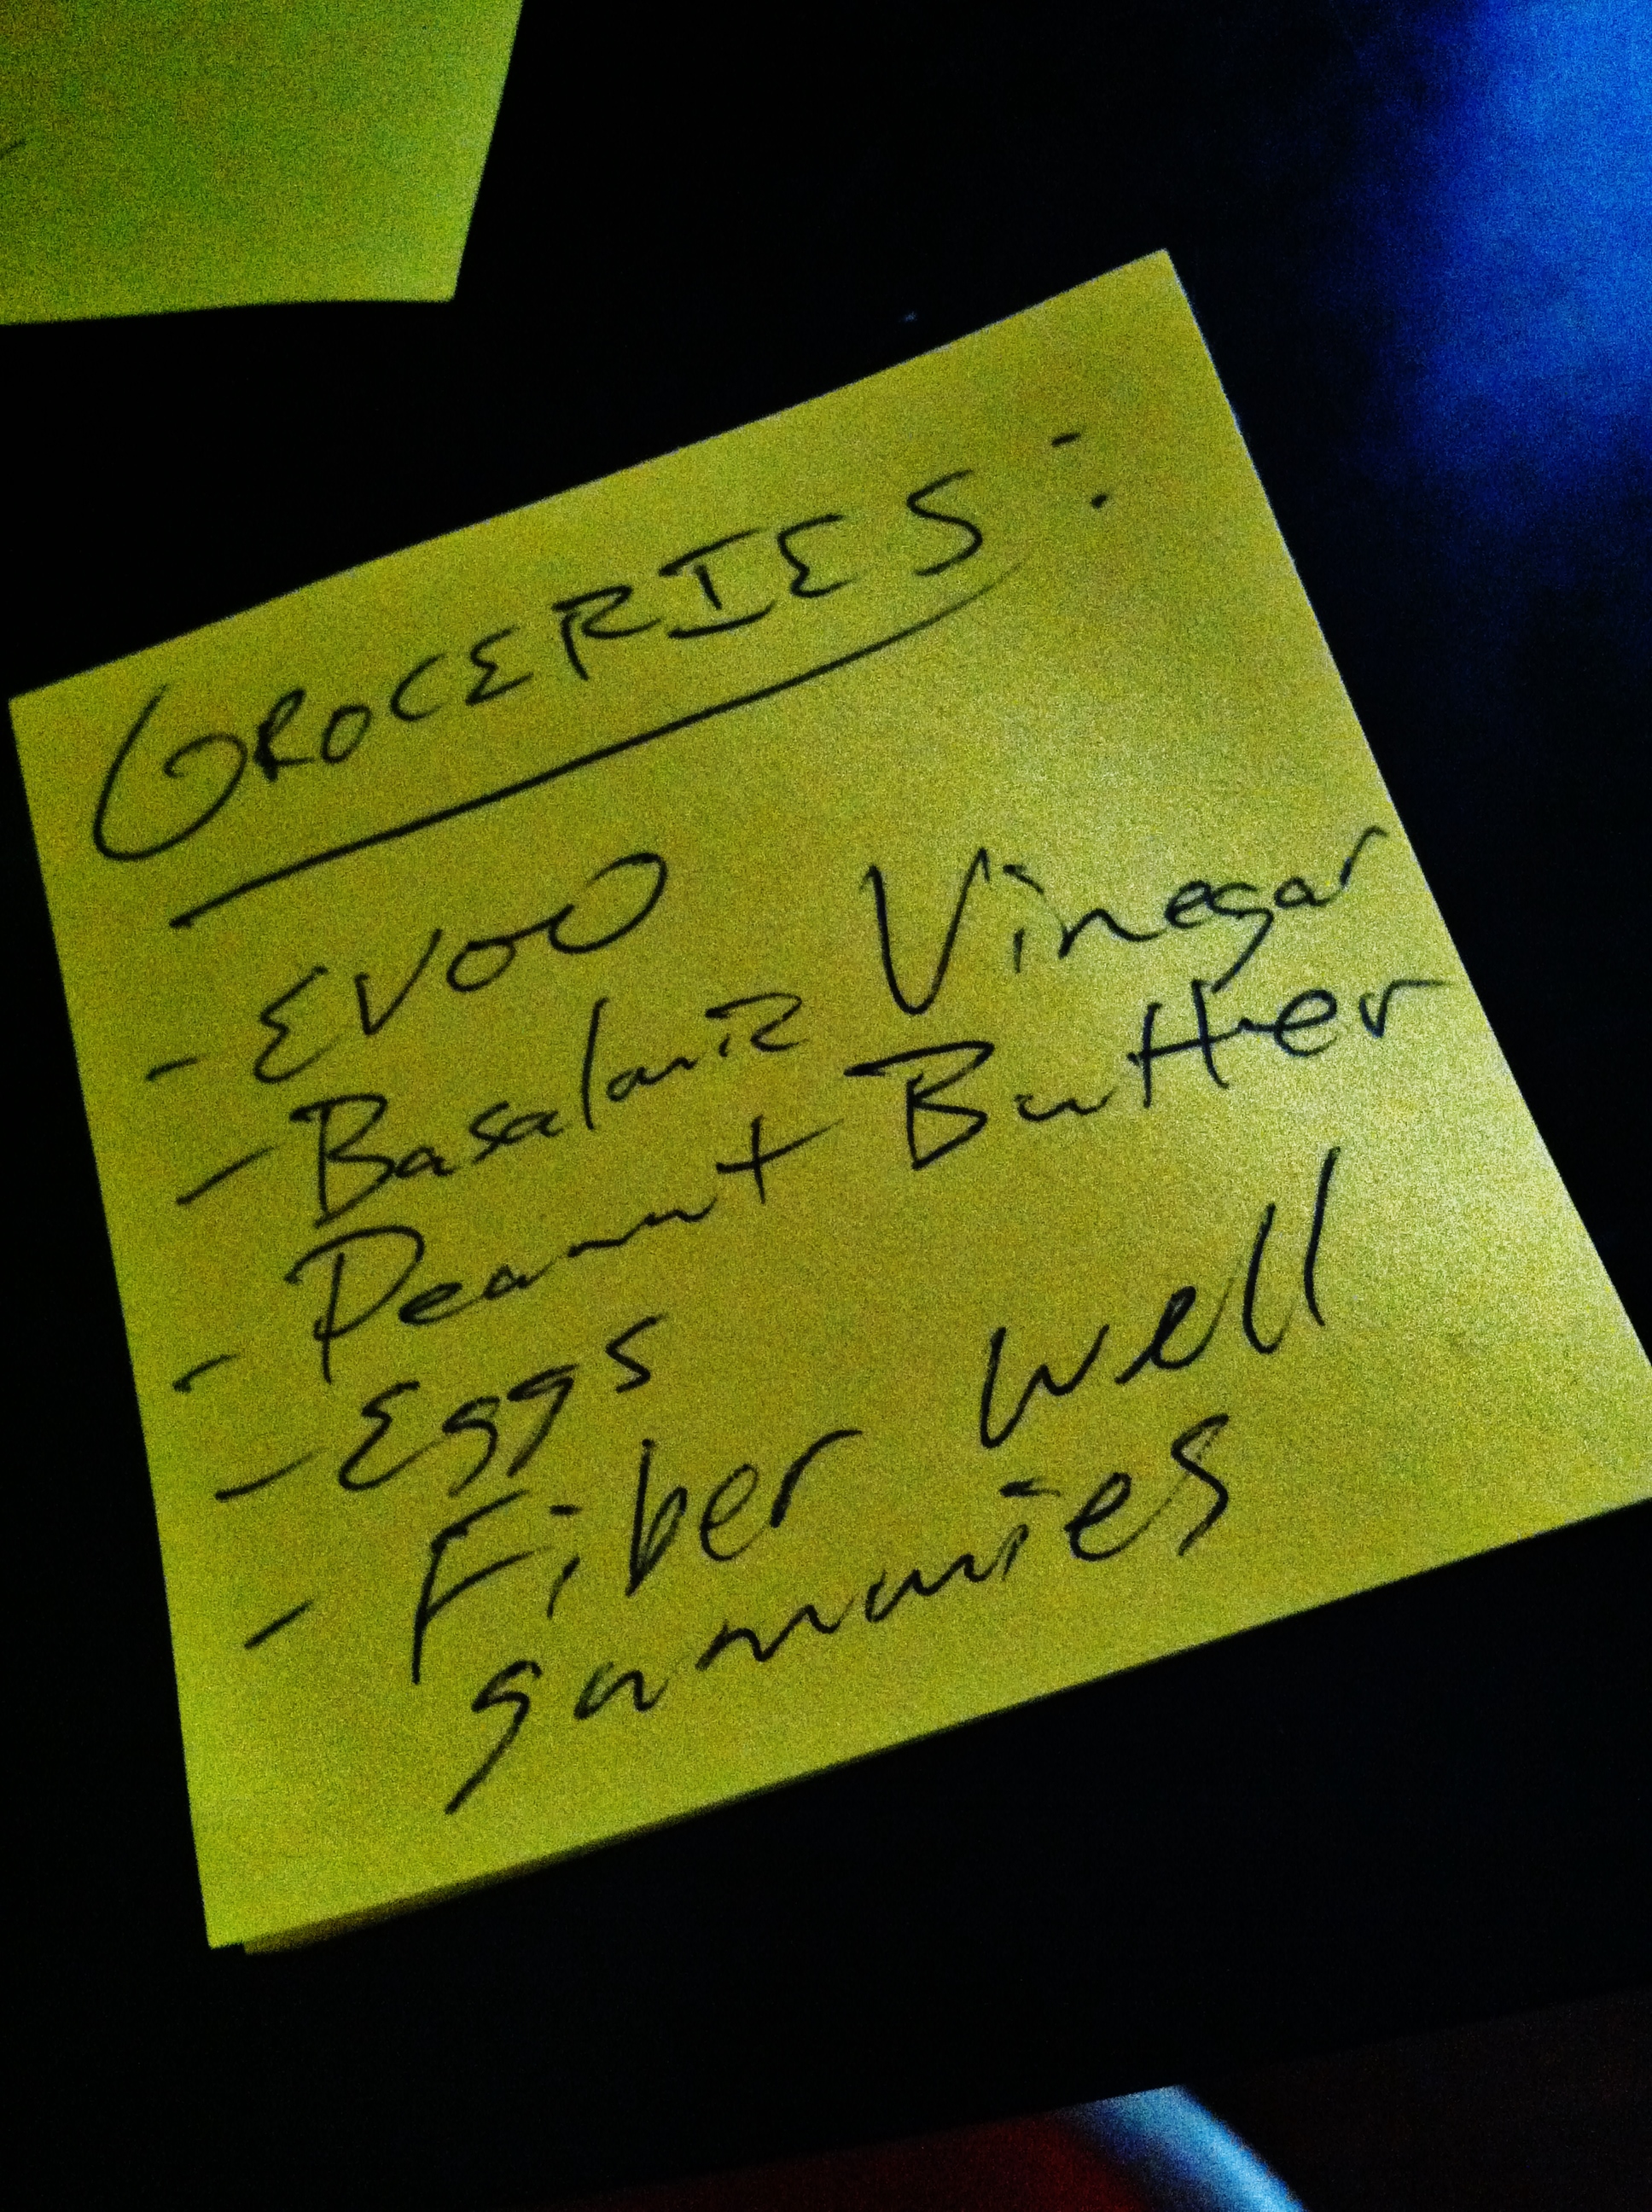 GROCERIES:
- EVOO
- Basalamic Vinegar
- Peanut Butter
- Eggs
- Fiber well
gummies